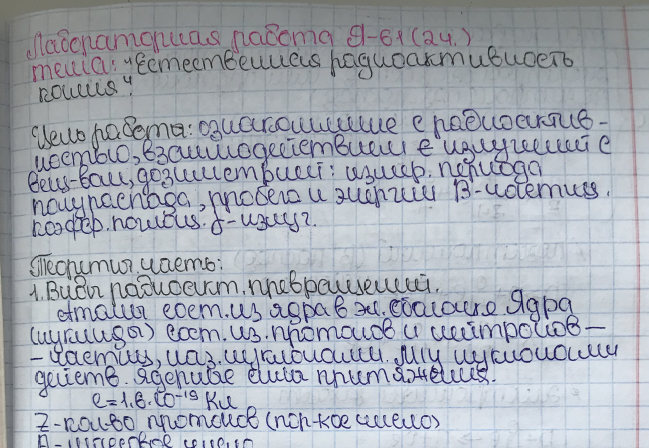 Лабораторная работа Я-61 (2ч.)
тема: "Естественная радиоактивность
калия"
Цель работы: ознакомление с радиоактив-
ностью, взаимодействием с излучений с
вещ-вом, дозиметрией: измер. периода
полураспада, пробега и энергии β-частиц.
коэф. поглощ. γ-излуч.
Теоритич. часть:
1. Виды радиоакт. превращений.
Атомы сост. из ядра в эл. оболочке. Ядра
(нуклиды) сост. из. протонов и нейтронов –
– частиц, наз. нуклонами. М/у нуклонами
действ. ядерные силы притяжения.
e=1,6.10⁻¹⁹ Кл
Z-кол-во протонов (пор-кое число)
A-массовое число